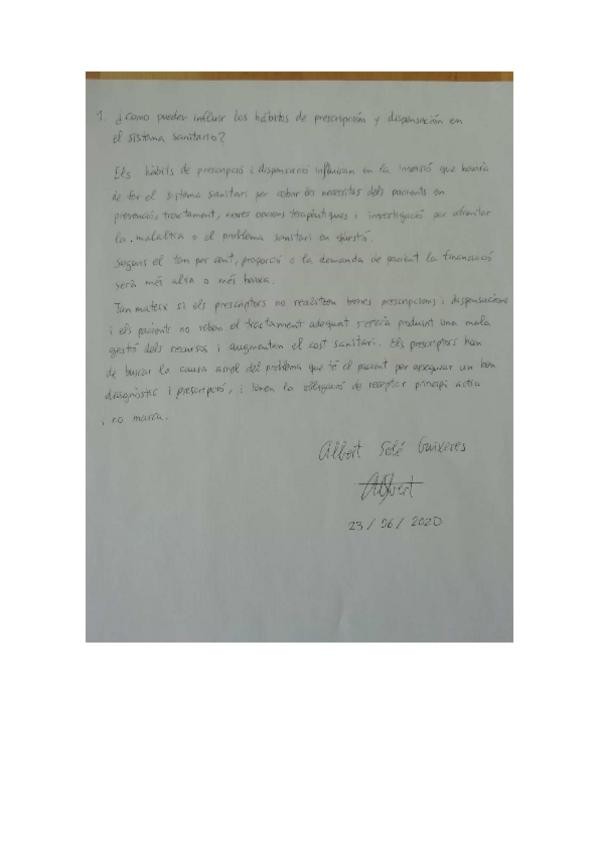 1. ¿Como pueden influir los hábitos de prescripción y dispensación en
el sistema sanitario?
Els hàbits de prescripció i dispensació influiran en la inversió que hauria
de fer el sistema sanitari per cobrir les necessitats dels pacients en
prevenció, tractament, noves opcions terapèutiques i investigació per afrontar
la malaltia o el problema sanitari en qüestió.
Segons el tan per cent, proporció o la demanda de pacient la financiació
serà més alta o més baixa.
Tan mateix si els prescriptors no realitzen bones prescripcions i dispensacions
i els pacients no reben el tractament adequat s'estarà produint una mala
gestió dels recursos i augmenten el cost sanitari. Els prescriptors han
de buscar la causa arrel del problema que té el pacient per assegurar un bon
diagnòstic i prescripció, i tenen la obligació de receptar principi actiu
i no marca.
Albert Solé Guixeres
Albert
23/06/2020